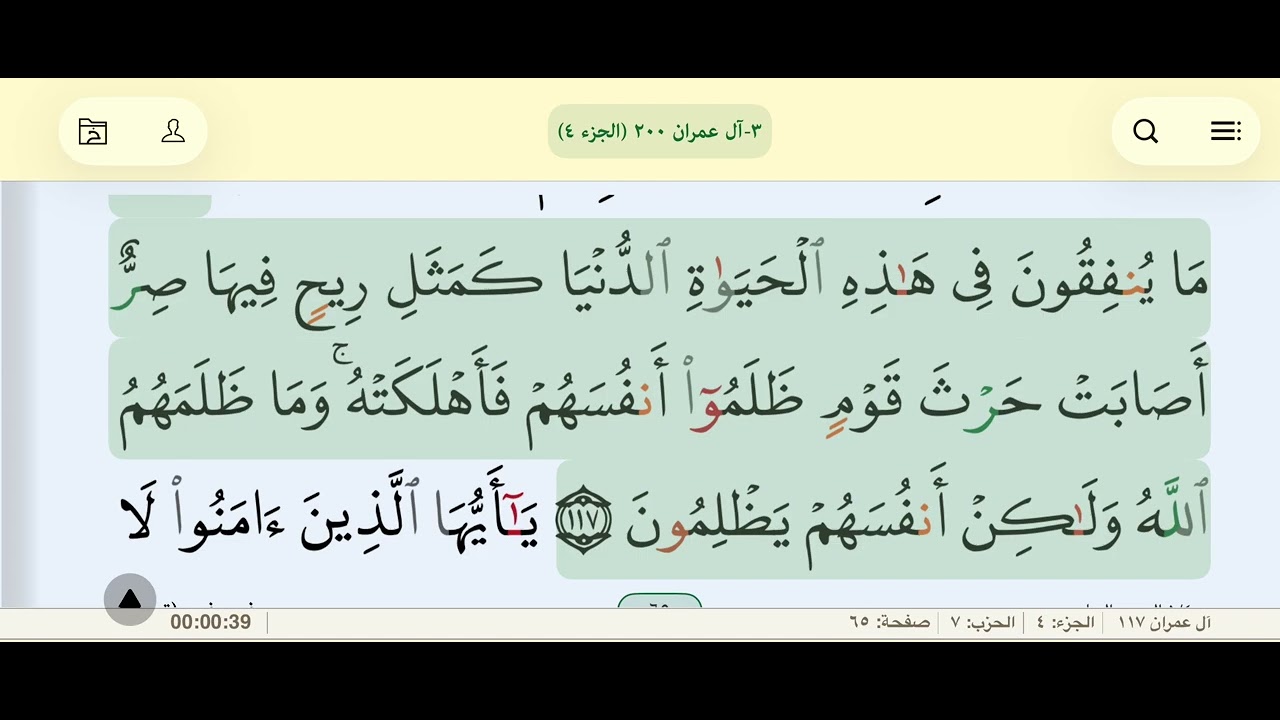 ٣-آل عمران ٢٠٠ (الجزء ٤)
مَا يُنفِقُونَ فِى هَـٰذِهِ ٱلْحَيَوٰةِ ٱلدُّنْيَا كَمَثَلِ رِيحٍ فِيهَا صِرٌّ
أَصَابَتْ حَرْثَ قَوْمٍ ظَلَمُوٓا۟ أَنفُسَهُمْ فَأَهْلَكَتْهُ ۚ وَمَا ظَلَمَهُمُ
ٱللَّهُ وَلَـٰكِنْ أَنفُسَهُمْ يَظْلِمُونَ ١١٧ يَـٰٓأَيُّهَا ٱلَّذِينَ ءَامَنُوا۟ لَا
آل عمران ١١٧ | الجزء: ٤ | الحزب: ٧ | صفحة: ٦٥ | 00:00:39